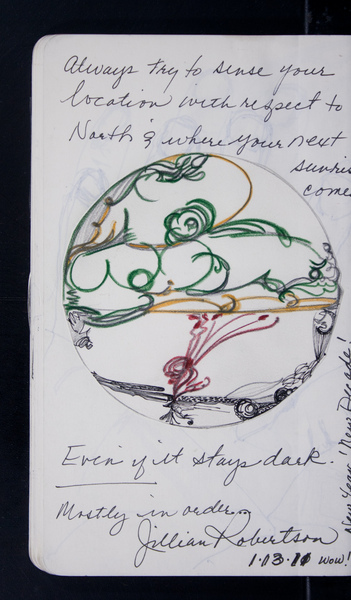 Always try to sense your
location with respect to
North & where your next
sunris
comes
Even if it stays dark.
Mostly in order
Jillian Robertson
1.13.11 wow!
New Year! New Decade!